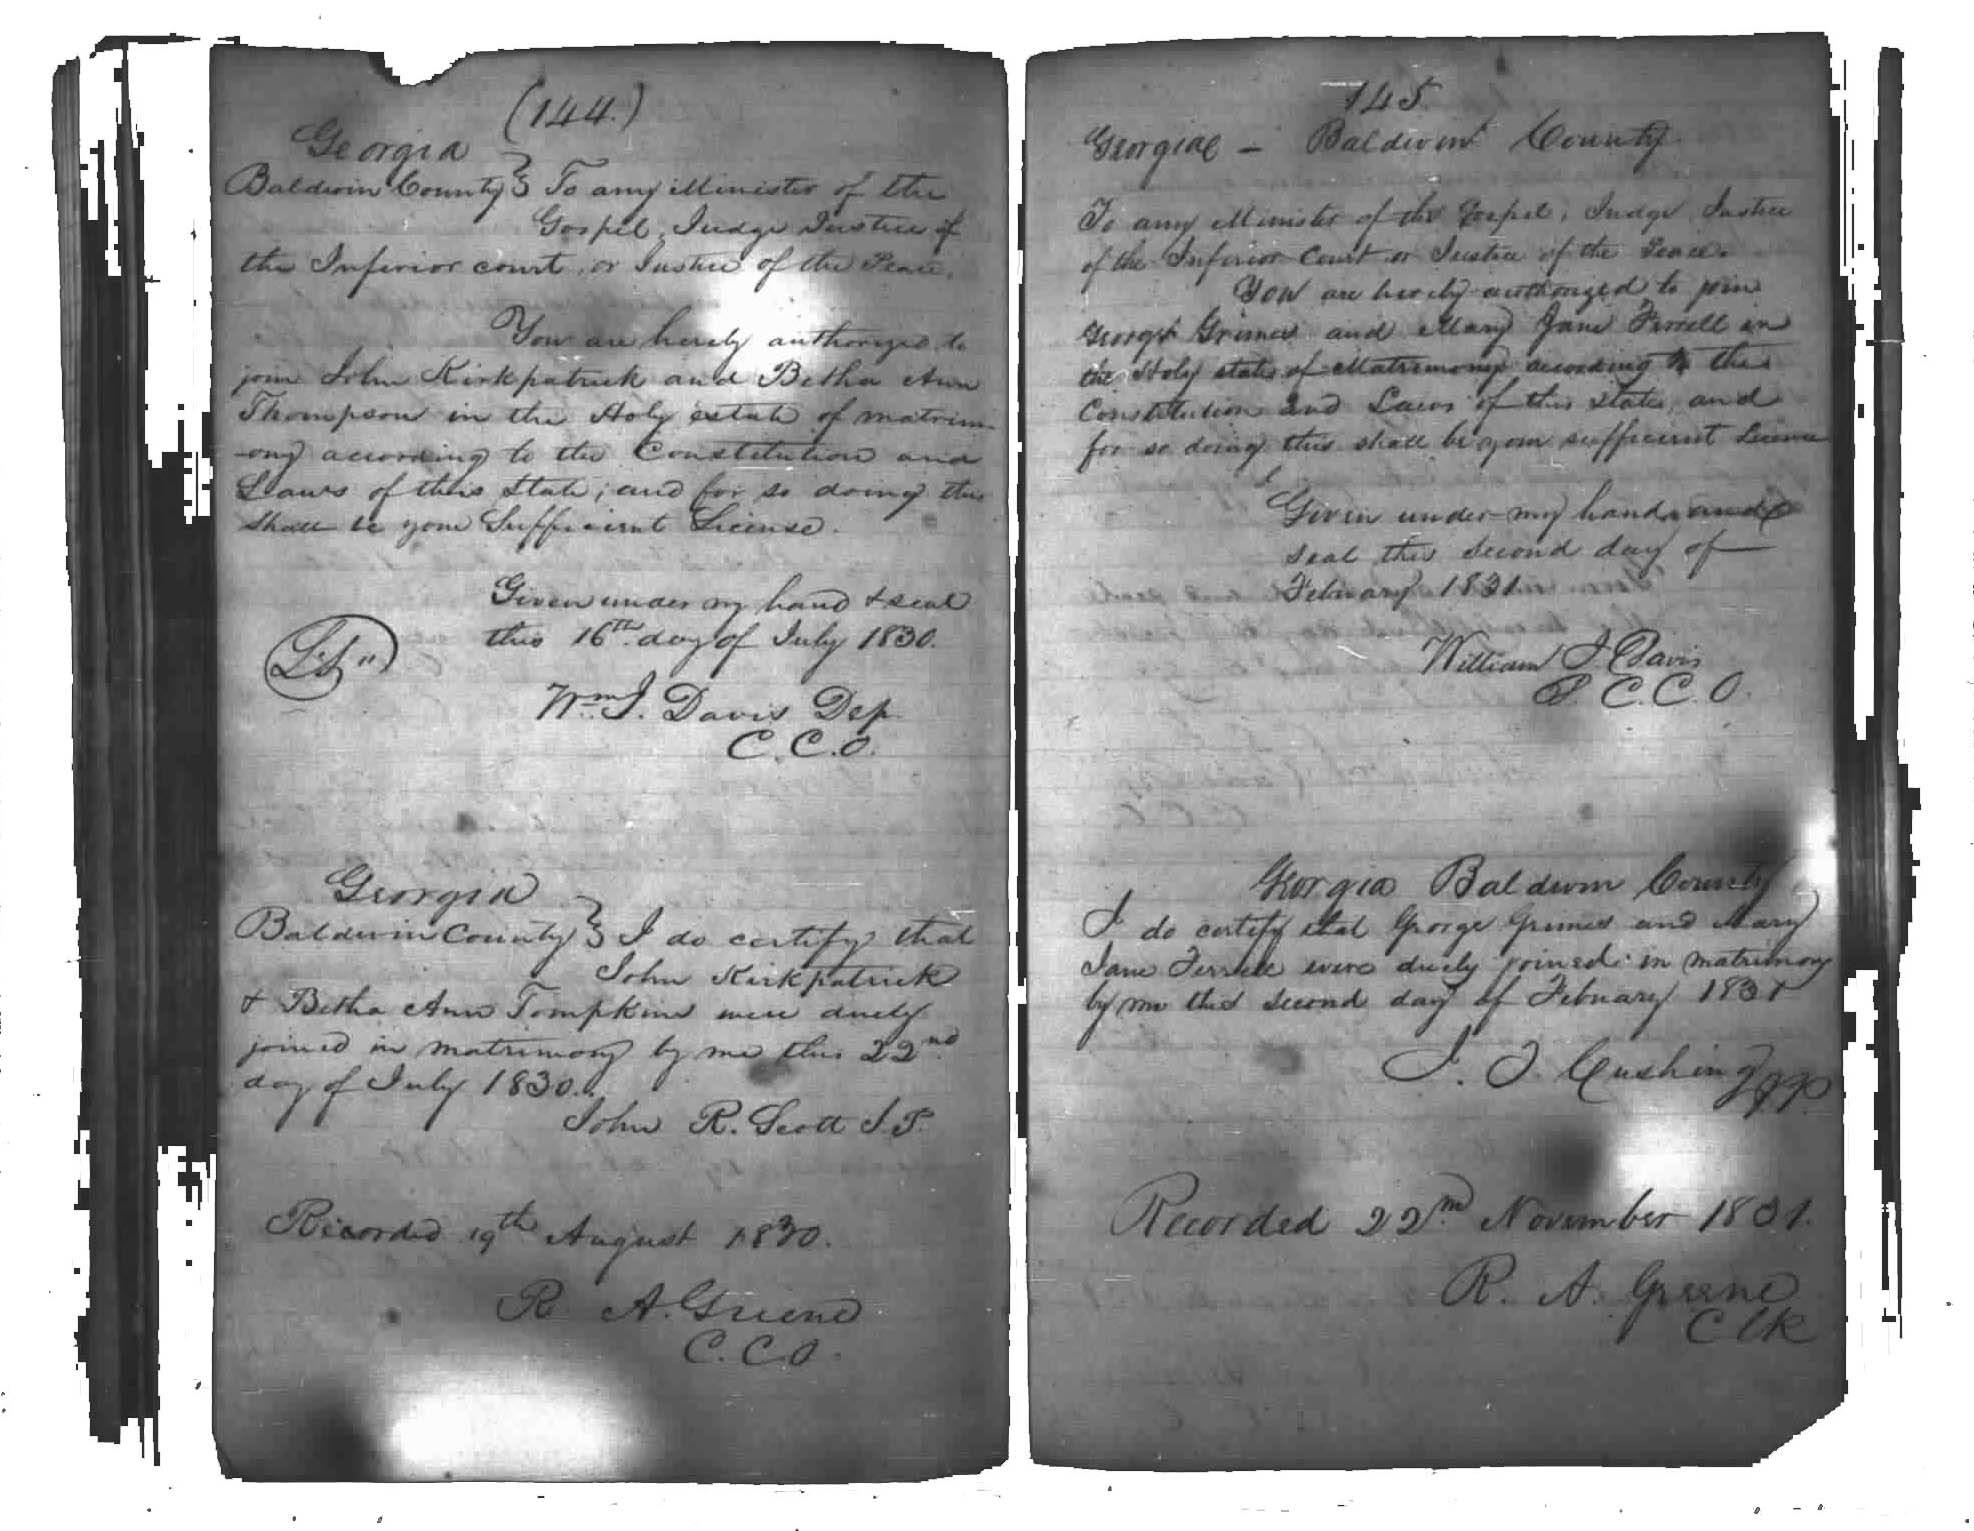 (144.)
Georgia
Baldwin County } To any Minister of the
Gospel, Judge Justice of
the Inferior court, or Justice of the Peace.
You are hereby authorized to
join John Kirkpatrick and Betha Ann
Thompson in the Holy estate of matrim-
-ony according to the Constitution and
Laws of this State; and for so doing this
shall be your Sufficient License.
Given under my hand & seal
this 16th day of July 1830.
Wm. J. Davis Dep
C.C.O.
Georgia
Baldwin County } I do certify that
John Kirkpatrick
& Betha Ann Tompkins were duely
joined in matrimony by me this 22nd
day of July 1830.
John R. Scott J.P.
Recorded 19th August 1830.
R. A. Greene
C.C.O.
145
Georgia – Baldwin County
To any Minister of the Gospel, Judge Justice
of the Inferior Court or Justice of the Peace.
You are hereby authorized to join
George Grimes and Mary Jane Ferrell in
the Holy state of Matrimony according to the
Constitution and Laws of this State, and
for so doing this shall be your sufficient License
Given under my hand and
seal this second day of
Febuary 1831
William J. Davis
D. C.C.O.
Georgia Baldwin County
I do certify that George Grimes and Mary
Jane Ferrell were duely joined in matrimony
by me this second day of Febuary 1831
J. J. Cushing JP
Recorded 22nd November 1831.
R. A. Greene
Clk